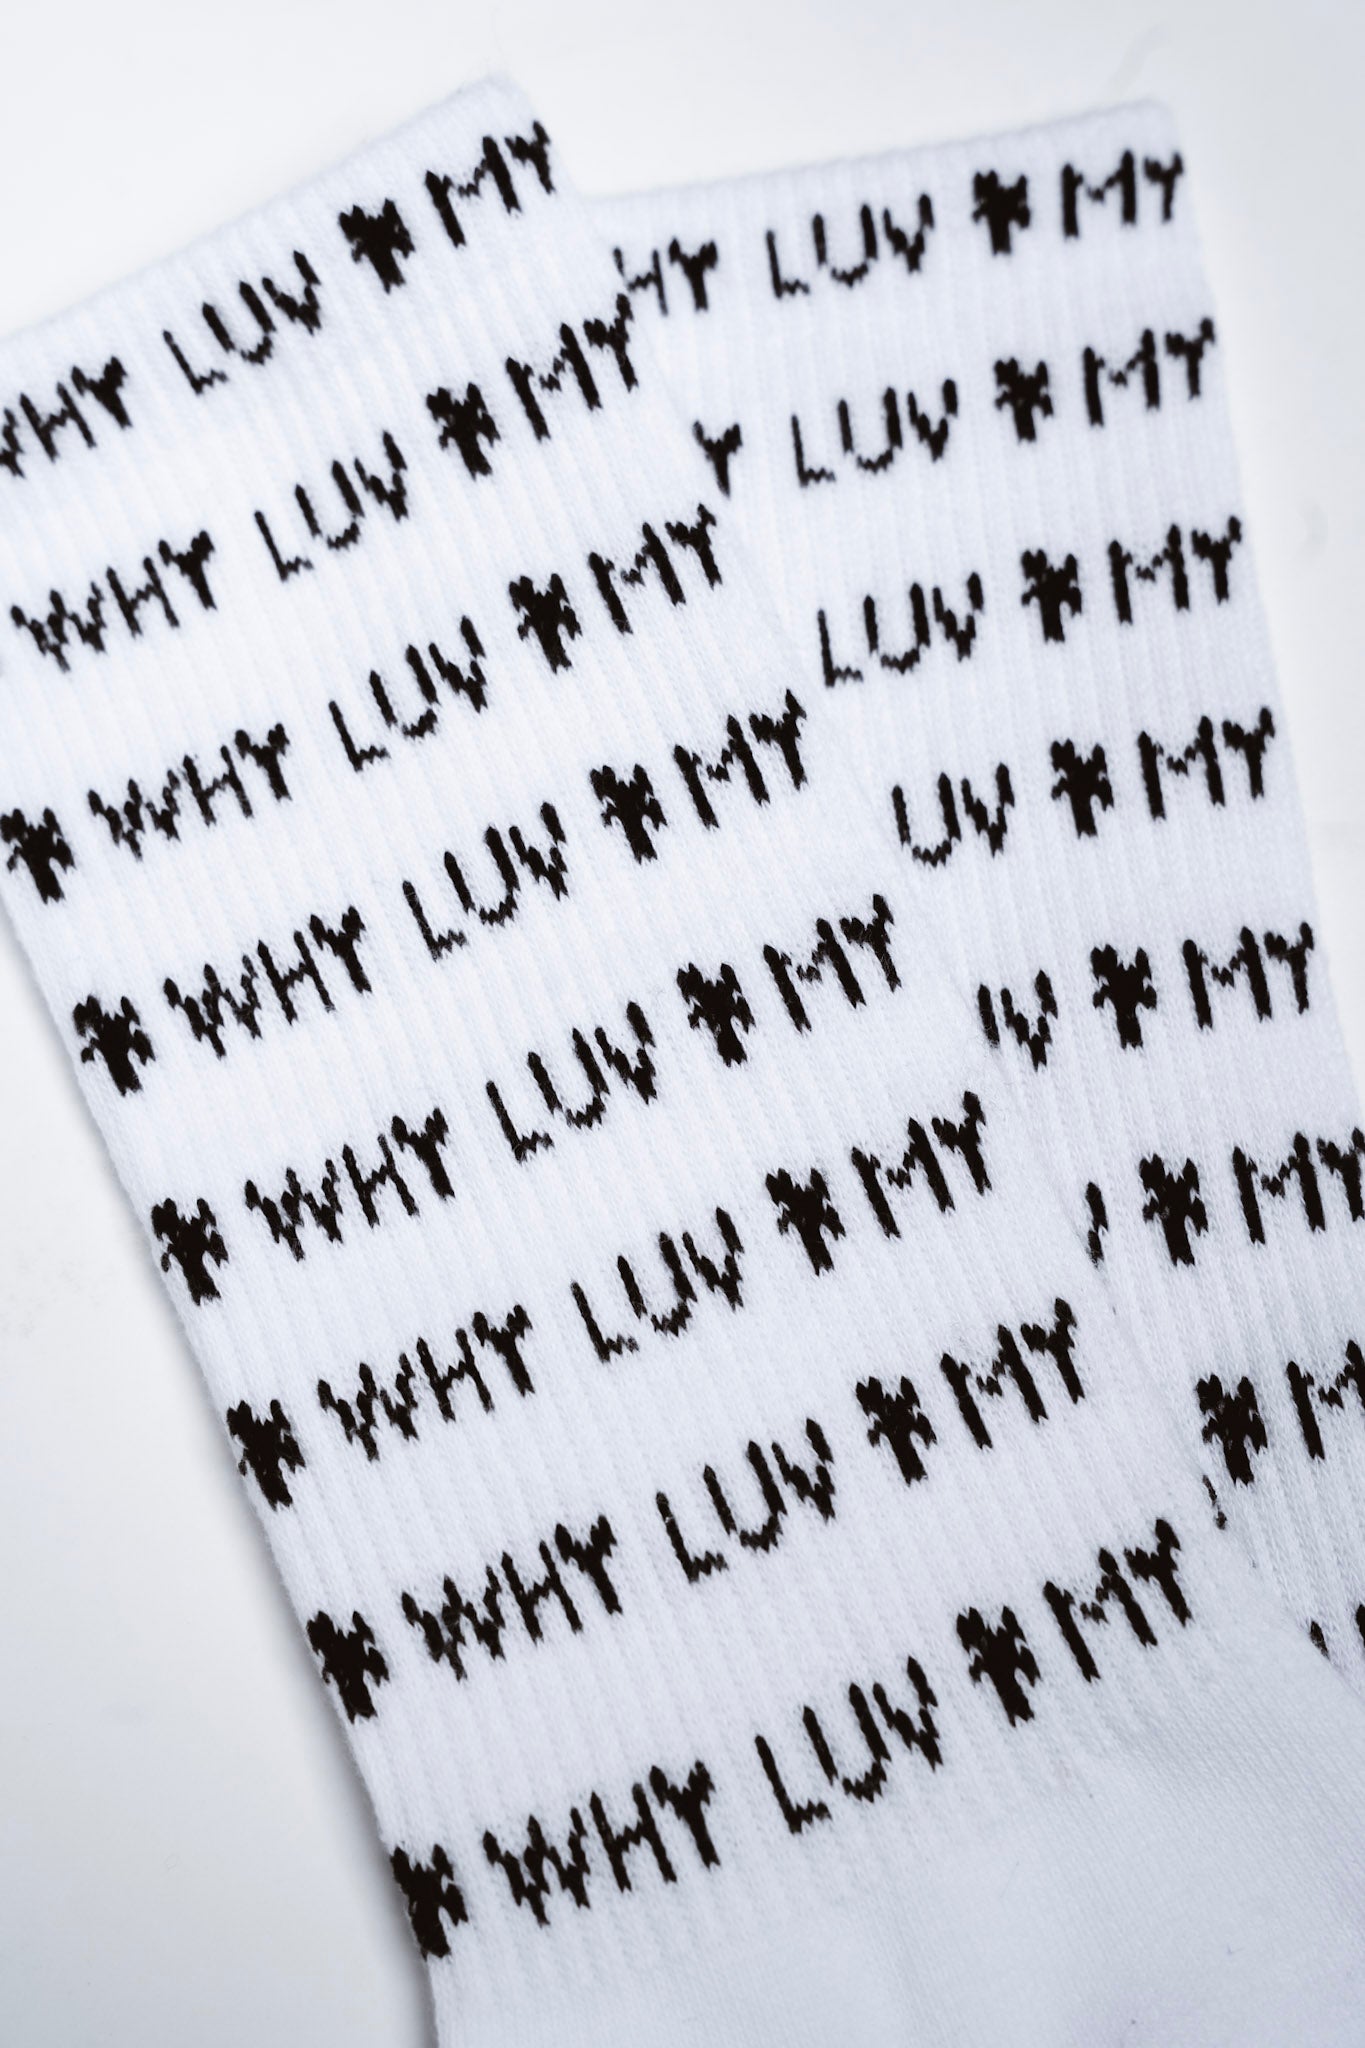 WHY LUV * MY
WHY LUV * MY
* WHY LUV * MY
* WHY LUV * MY
* WHY LUV * MY
* WHY LUV * MY
* WHY LUV * MY
* WHY LUV * MY
HY LUV * MY
Y LUV * MY
LUV * MY
UV * MY
UV * MY
* MY
* M